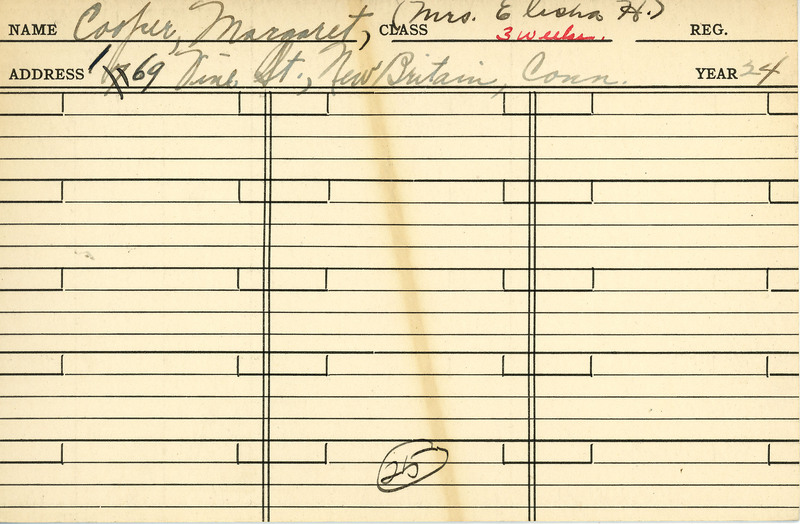 (Mrs. Elisha H.)
NAME Cooper, Margaret, CLASS 3 weeks. REG.
ADDRESS 169 Vine St., New Britain, Conn. YEAR 24
25